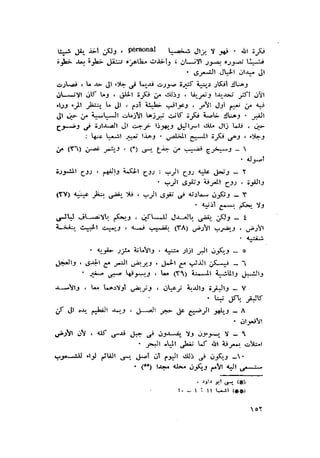 فكرة الله ٠ فهو لا يزال شخصيا personal ، ولكن أخذ يقل شيئا
فشيئا تصوره بصور الانسان ، وأخذت مظاهره تنتقل خطوة بعد خطوة
الى ميدان الخيال الشعرى ٠
وهناك أفكار دينية كثيرة صورت قديما فى جلاء الى حد ما ، فصارت
الآن أكثر تحديدا وتعريفا ، وذلك من فكرة الخلق ، وما كان الانسان
فيه من نعيم أول الأمر ، وعواقب خطيئة آدم ، الى ما ينتظر المرء وراء
القبر ٠ وهناك خاصة فكرة كانت تبرزها الأزمات السياسية من حين الى
حين ، فلما زال ملك اسرائيل ويهوذا خرجت الى الصدارة فى وضوح
وجلاء ، وهى فكرة المسيح المخلص ٠ وهذا تعبير أشعيا عنها :
١ – وسيخرج قضيب من جذع يسى (*) ، وينمو غصن (٣٦) من
أصوله ٠
٢ – وتحل عليه روح الرب : روح الحكمة والفهم ، روح المشورة
والقوة ، روح المعرفة وتقوى الرب ٠
٣ – وتكون سعادته فى تقوى الرب ، فلا يقضى بنظر عينيه (٣٧)
ولا يحكم بسمع أذنيه ٠
٤ – ولكن يقضى بالعدل للمساكين ، ويحكم بالانصاف لبائسى
الأرض ، ويضرب الأرض (٣٨) بقضيب فمه ، ويميت الخبيث بنفخة
شفتيه ٠
٥ – ويكون البر ازار متنيه ، والأمانة مئزر حقويه ٠
٦ – فيسكن الذئب مع الحمل ، ويربض النمر مع الجدى ، والعجل
والشبل والماشية المسمنة (٣٩) معا ، ويسوقها صبى صغير ٠
٧ – والبقرة والدبة ترعيان ، وتربض أولادهما معا ، والأسد
كالبقر يأكل تبنا ٠
٨ – ويلهو الرضيع على جحر الصل ، ويمد الفطيم يده الى جحر
الأفعوان ٠
٩ – لا يسوءون ولا يفسدون فى جبل قدسى كله ، لأن الأرض
امتلأت بمعرفة الله كما تغطى المياه البحر ٠
١٠– ويكون فى ذلك اليوم أن أصل يسى القائم لواء للشعوب
ستسعى اليه الأمم ويكون محله مجدا (**) ٠
(*) يسى أبو داود ٠
(**) أشعيا ١١ : ١ – ١٠
١٥٢